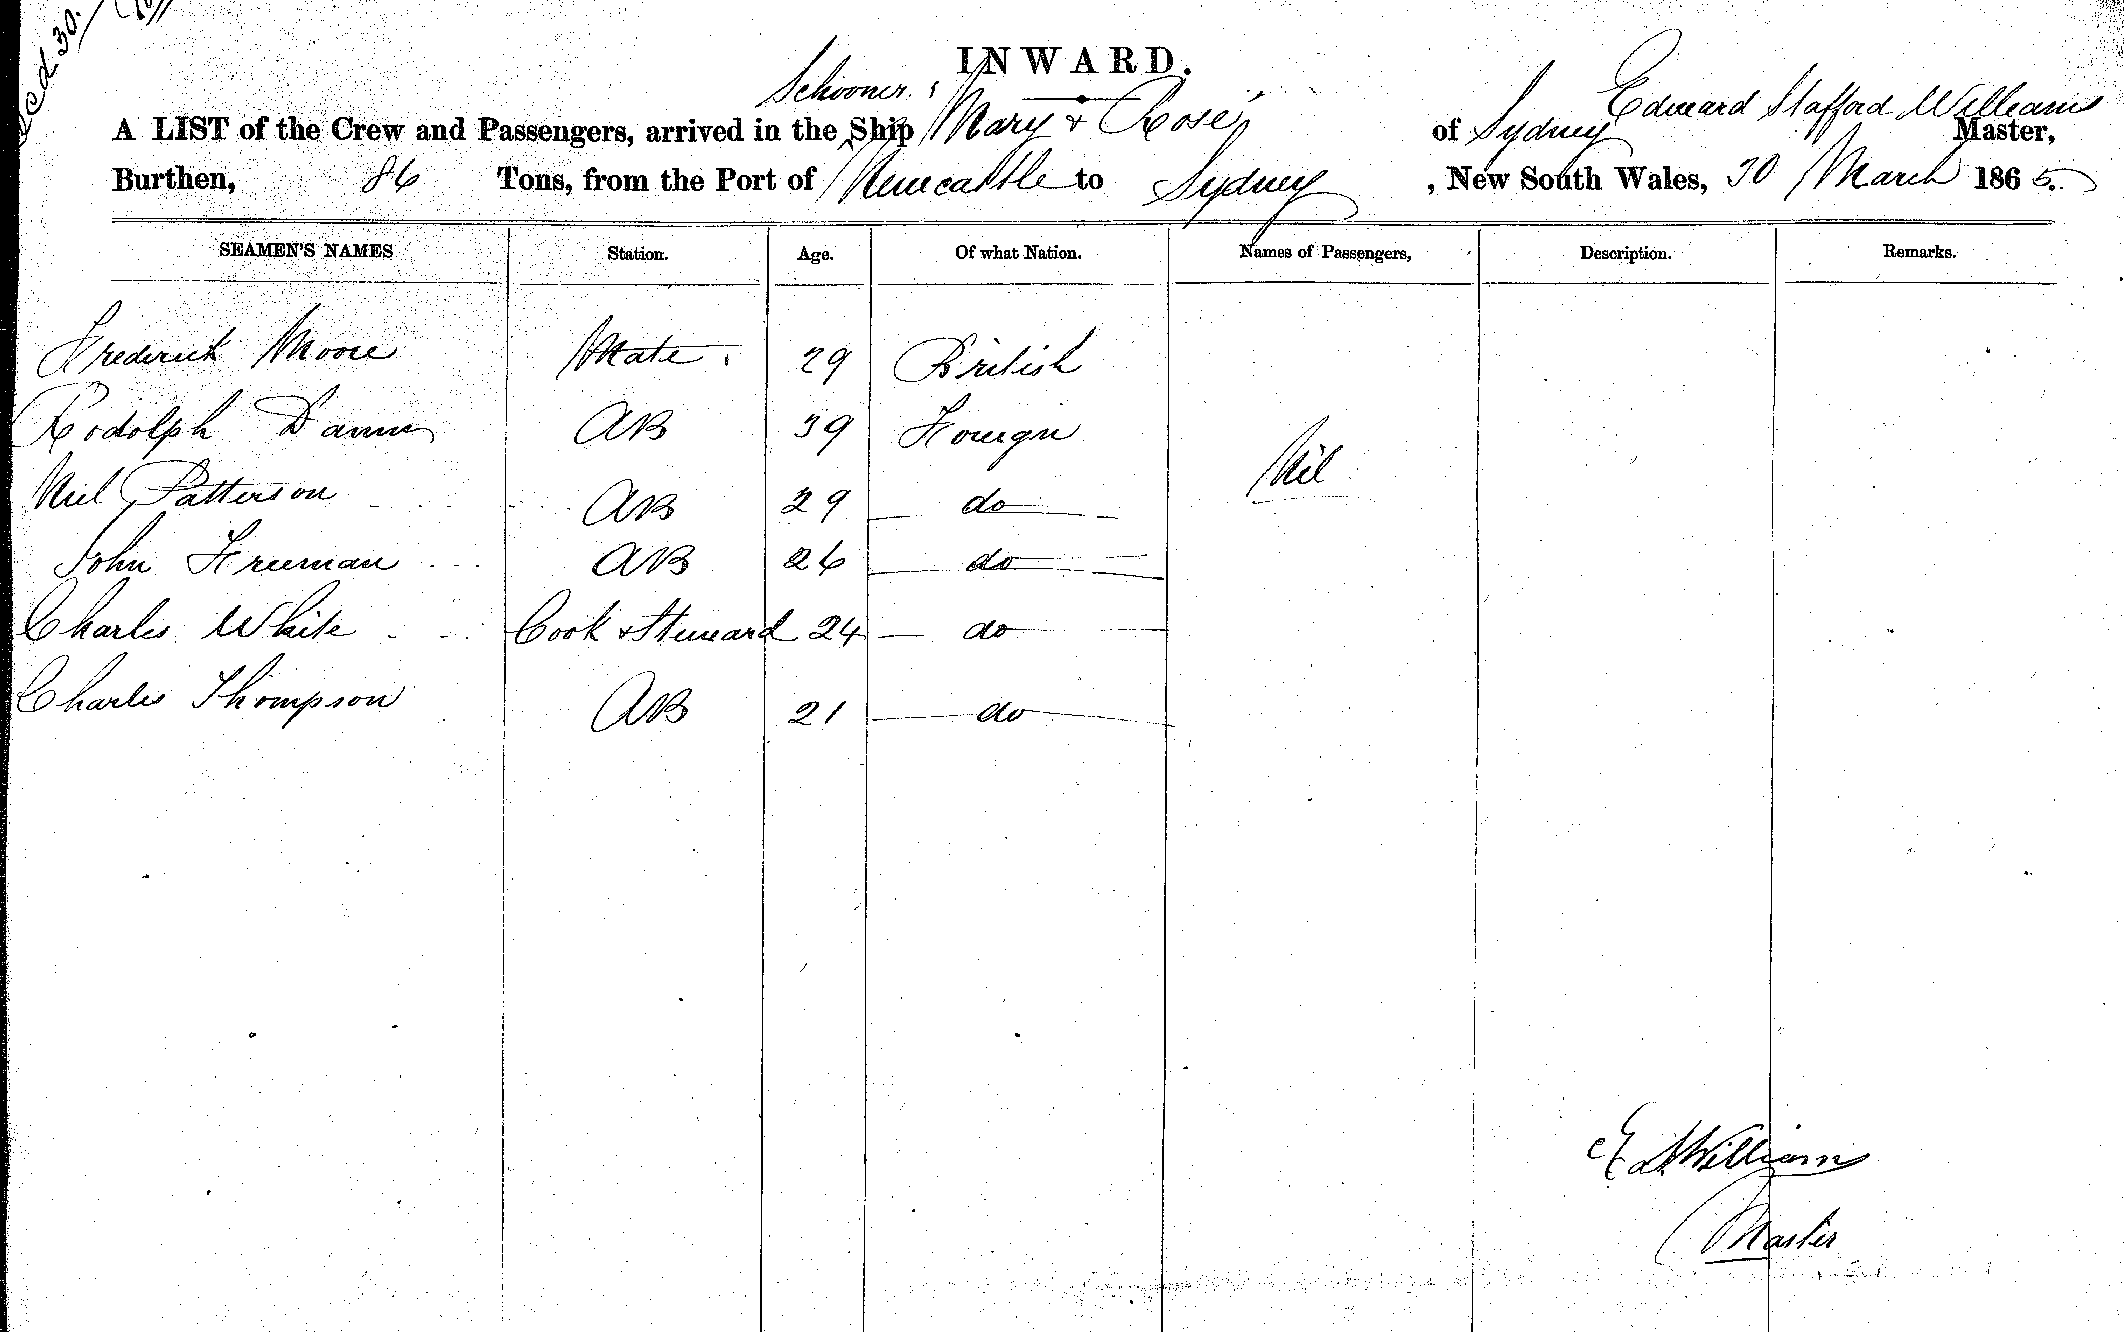 ecd. 30.
INWARD.
Schooner "
A LIST of the Crew and Passengers, arrived in the Ship Mary & Rose of Sydney Edward Stafford Williams Master,
Burthen, 86 Tons, from the Port of Newcastle to Sydney, New South Wales, 30 March 1865.
SEAMEN'S NAMES Station. Age. Of what Nation. Names of Passengers, Description. Remarks.
Frederick Moore Mate. 29 British
Rodolph 39 AB Foreign
Niel Patterson AB 29 do Nil
John Freeman AB 26 do
Charles White Cook & Steward 24 do
Charles Thompson AB 21 do
E S Williams
Master